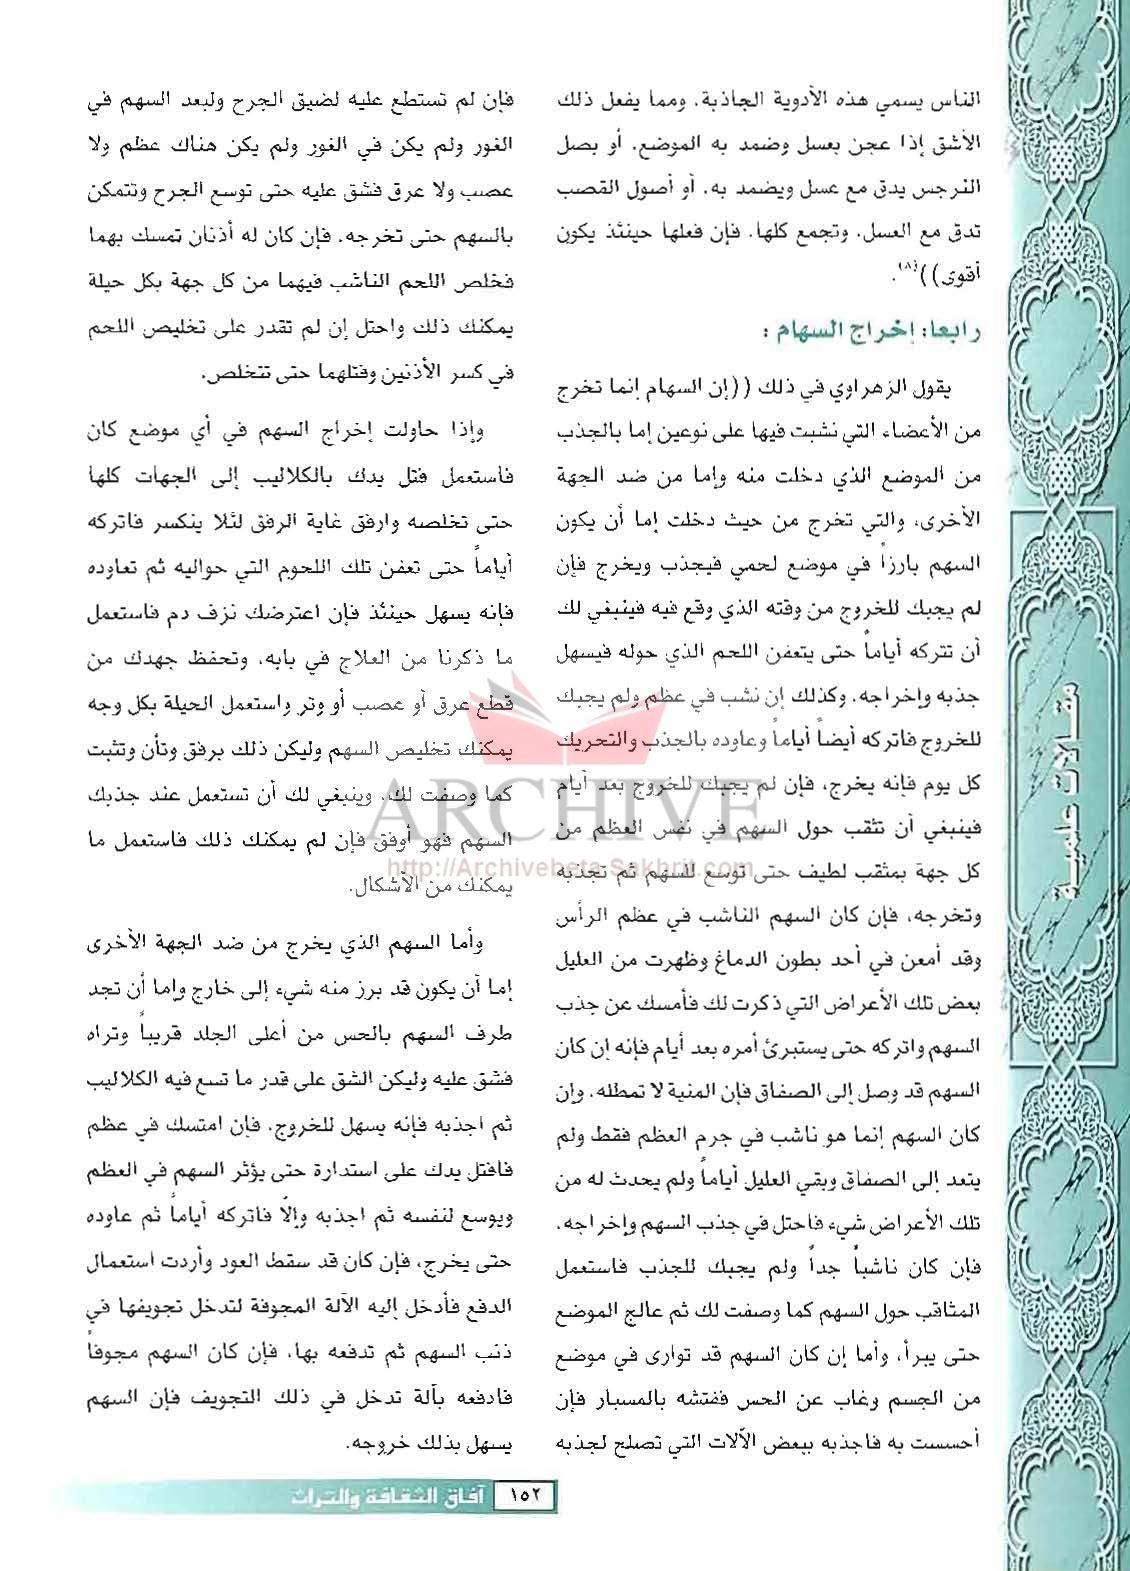 الناس يسمي هذه الأدوية الجاذبة. ومما يفعل ذلك
الأشق إذا عجن بعسل وضمد به الموضع. أو بصل
النرجس يدق مع عسل ويضمد به. أو أصول القصب
تدق مع العسل. وتجمع كلها. فإن فعلها حينئذ يكون
أقوى))(٨).
رابعا: إخراج السهام :
يقول الزهراوي في ذلك ((إن السهام إنما تخرج
من الأعضاء التي نشبت فيها على نوعين إما بالجذب
من الموضع الذي دخلت منه وإما من ضد الجهة
الأخرى، والتي تخرج من حيث دخلت إما أن يكون
السهم بارزاً في موضع لحمي فيجذب ويخرج فإن
لم يجبك للخروج من وقته الذي وقع فيه فينبغي لك
أن تتركه أياماً حتى يتعفن اللحم الذي حوله فيسهل
جذبه وإخراجه. وكذلك إن نشب في عظم ولم يجبك
للخروج فاتركه أيضاً أياماً وعاوده بالجذب والتحريك
كل يوم فإنه يخرج، فإن لم يجبك للخروج بعد أيام
فينبغي أن تثقب حول السهم في نفس العظم من
كل جهة بمثقب لطيف حتى توسع للسهم ثم تجذبه
وتخرجه، فإن كان السهم الناشب في عظم الرأس
وقد أمعن في أحد بطون الدماغ وظهرت من العليل
بعض تلك الأعراض التي ذكرت لك فأمسك عن جذب
السهم واتركه حتى يستبرئ أمره بعد أيام فإنه إن كان
السهم قد وصل إلى الصفاق فإن المنية لا تمطله. وإن
كان السهم إنما هو ناشب في جرم العظم فقط ولم
يتعد إلى الصفاق وبقي العليل أياماً ولم يحدث له من
تلك الأعراض شيء فاحتل في جذب السهم وإخراجه.
فإن كان ناشباً جداً ولم يجبك للجذب فاستعمل
المثاقب حول السهم كما وصفت لك ثم عالج الموضع
حتى يبرأ، وأما إن كان السهم قد توارى في موضع
من الجسم وغاب عن الحس ففتشه بالمسبار فإن
أحسست به فاجذبه ببعض الآلات التي تصلح لجذبه
فإن لم تستطع عليه لضيق الجرح ولبعد السهم في
الغور ولم يكن في الغور ولم يكن هناك عظم ولا
عصب ولا عرق فشق عليه حتى توسع الجرح وتتمكن
بالسهم حتى تخرجه. فإن كان له أذنان تمسك بهما
فخلص اللحم الناشب فيهما من كل جهة بكل حيلة
يمكنك ذلك واحتل إن لم تقدر على تخليص اللحم
في كسر الأذنين وفتلهما حتى تتخلص.
وإذا حاولت إخراج السهم في أي موضع كان
فاستعمل فتل يدك بالكلاليب إلى الجهات كلها
حتى تخلصه وارفق غاية الرفق لئلا ينكسر فاتركه
أياماً حتى تعفن تلك اللحوم التي حواليه ثم تعاوده
فإنه يسهل حينئذ فإن اعترضك نزف دم فاستعمل
ما ذكرنا من العلاج في بابه، وتحفظ جهدك من
قطع عرق أو عصب أو وتر واستعمل الحيلة بكل وجه
يمكنك تخليص السهم وليكن ذلك برفق وتأن وتثبت
كما وصفت لك. وينبغي لك أن تستعمل عند جذبك
السهم فهو أوفق فإن لم يمكنك ذلك فاستعمل ما
يمكنك من الأشكال.
وأما السهم الذي يخرج من ضد الجهة الأخرى
إما أن يكون قد برز منه شيء إلى خارج وإما أن تجد
طرف السهم بالحس من أعلى الجلد قريباً وتراه
فشق عليه وليكن الشق على قدر ما تسع فيه الكلاليب
ثم اجذبه فإنه يسهل للخروج. فإن امتسك في عظم
فافتل يدك على استدارة حتى يؤثر السهم في العظم
ويوسع لنفسه ثم اجذبه وإلّا فاتركه أياماً ثم عاوده
حتى يخرج، فإن كان قد سقط العود وأردت استعمال
الدفع فأدخل إليه الآلة المجوفة لتدخل تجويفها في
ذنب السهم ثم تدفعه بها. فإن كان السهم مجوفاً
فادفعه بآلة تدخل في ذلك التجويف فإن السهم
يسهل بذلك خروجه.
مقالات علمية
ARCHIVE
http://Archivebeta.Sakhrit.com
١٥٢ آفاق الثقافة والتراث